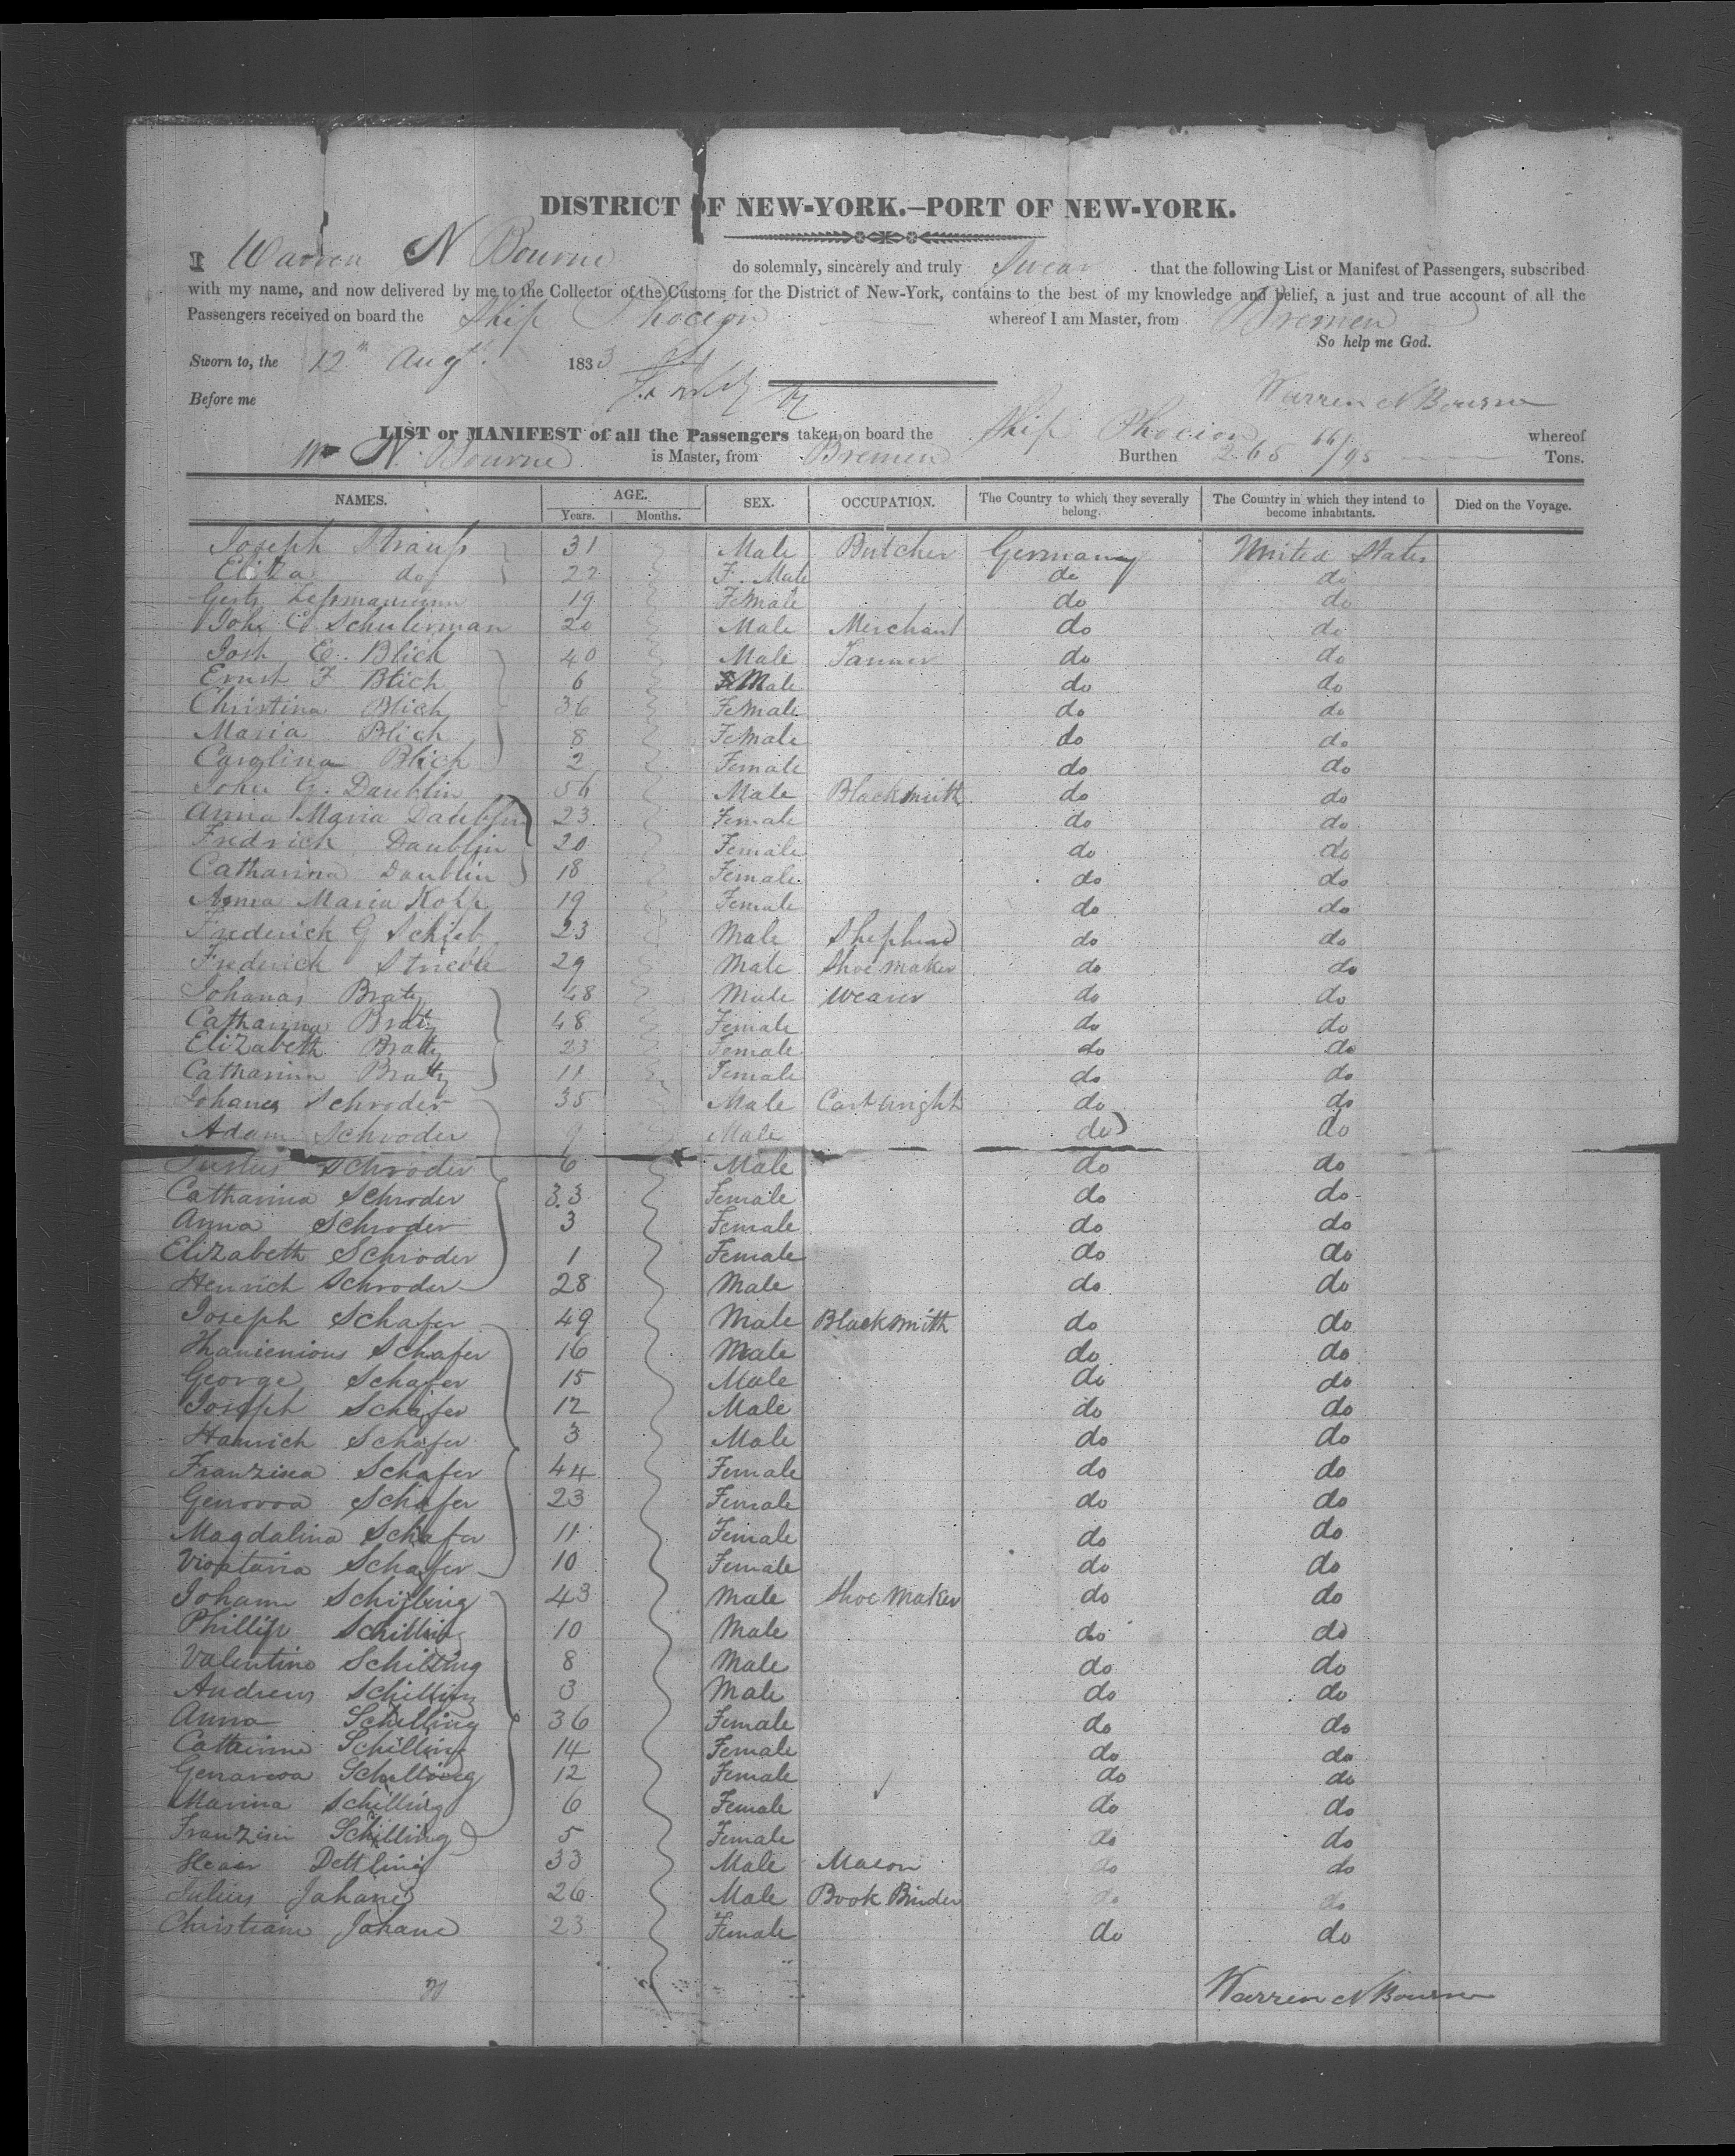 DISTRICT OF NEW-YORK.—PORT OF NEW-YORK.
I Warren N Bourne do solemnly, sincerely and truly Swear that the following List or Manifest of Passengers, subscribed
with my name, and now delivered by me to the Collector of the Customs for the District of New-York, contains to the best of my knowledge and belief, a just and true account of all the
Passengers received on board the Ship Phocion whereof I am Master, from Bremen
So help me God.
Sworn to, the 12th Augt. 1833
Before me
Warren N Bourne
LIST or MANIFEST of all the Passengers taken on board the Ship Phocion whereof
Wm N. Bourne is Master, from Bremen Burthen 265 66/95 Tons.
NAMES. AGE. SEX. OCCUPATION. The Country to which they severally belong. The Country in which they intend to become inhabitants. Died on the Voyage.
Years. Months.
Joseph Strauss 31 Male Butcher Germany United States
Eliza do 22 F. Male do do
19 Female do do
Joh. C. Schulerman 20 Male Merchant do do
Josh E. Blich 40 Male Tanner do do
Ernst F Blich 6 Male do do
Christina Blich 36 Female do do
Maria Blich 8 Female do do
Carolina Blich 2 Female do do
John G. Daublin 56 Male Blacksmith do do
Anna Maria Daublin 23 Female do do
Fredrich Daublin 20 Female do do
Catharina Daublin 18 Female do do
Anna Maria Kopp 19 Female do do
Frederick G Schieb 23 Male Shepherd do do
Frederick 29 Male Shoe maker do do
Johanas Braty 48 Male Weaver do do
Catharina Braty 48 Female do do
Elizabeth Bratty 23 Female do do
Catharina Bratty 11 Female do do
Johanes Schroder 35 Male Cartwright do do
Adam Schroder 9 Male do do
Justus Schroder 6 Male do do
Catharina Schroder 33 Female do do
Anna Schroder 3 Female do do
Elizabeth Schroder 1 Female do do
Henrich Schroder 28 Male do do
Joseph Schafer 49 Male Blacksmith do do
Schafer 16 Male do do
George Schafer 15 Male do do
Joseph Schafer 12 Male do do
Hanrich Schafer 3 Male do do
Franzisca Schafer 44 Female do do
Genovoa Schafer 23 Female do do
Magdalina Schafer 11 Female do do
Schafer 10 Female do do
Johann Schilling 43 Male Shoe Maker do do
Phillip Schilling 10 Male do do
Valentino Schilling 8 Male do do
Andreas Schilling 3 Male do do
Anna Schilling 36 Female do do
Catharina Schilling 14 Female do do
Genavoa Schilling 12 Female do do
Marina Schilling 6 Female do do
Schilling 5 Female do do
Dettling 33 Male Mason do do
Julius Johane 26 Male Book Binder do do
Christiane Johane 23 Female do do
Warren N Bourne